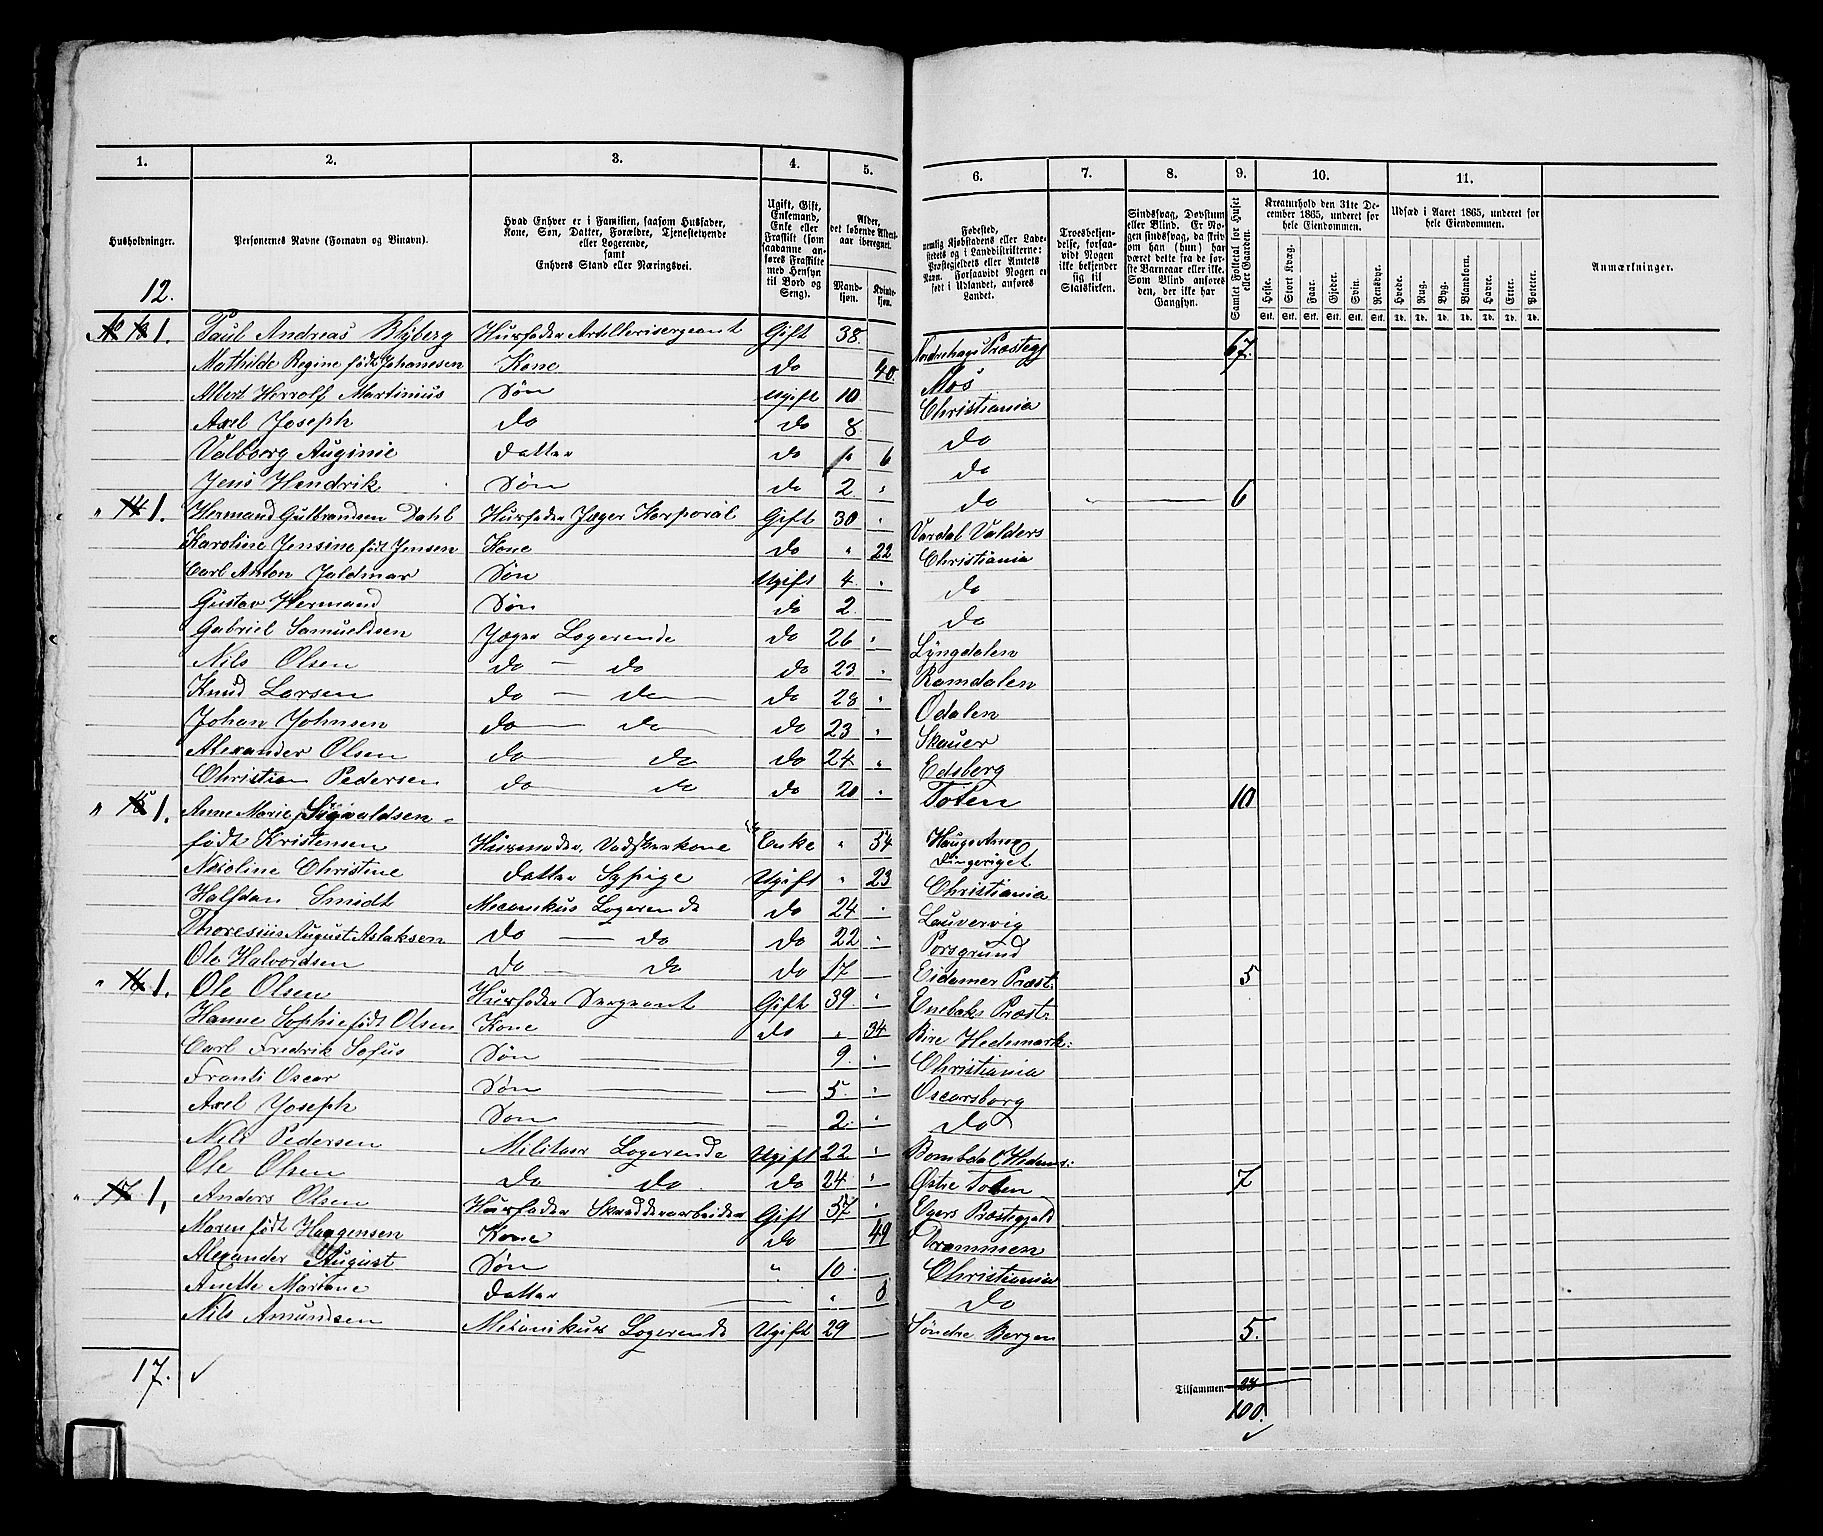 1. 2. 3. 4. 5. 6. 7. 8. 9. 10. 11.
Husholdninger.
Personernes Navne (Fornavn og Binavn).
Hvad Enhver er i Familien, saasom Husfader,
Kone, Søn, Datter, Forældre, Tjenestetyende
eller Logerende,
samt
Enhvers Stand eller Næringsvei.
Ugift, Gift,
Enkemand,
Enke eller
Fraskilt (som
saadanne an-
føres Fraskilte
med Hensyn
til Bord og
Seng).
Alder,
det løbende Alders-
aar iberegnet.
Mand-
kjøn.
Kvinde-
kjøn.
Fødested,
nemlig Kjøbstadens eller Lade-
stedets og i Landdistrikterne:
Præstegjeldets eller Amtets
Navn. Forsaavidt Nogen er
født i Udlandet, anføres
Landet.
Troesbekjen-
delse, forsaa-
vidt Nogen
ikke bekjender
sig til
Statskirken.
Sindssvag, Døvstum
eller Blind. Er No-
gen sindssvag, da skriv
om han (hun) har
været dette fra de før-
ste Barneaar eller ikke.
Som Blind anføres
den, der ikke har
Gangsyn.
Samlet Folketal for Huset
eller Gaarden.
Kreaturhold den 31te De-
cember 1865, underet for
hele Eiendommen.
Heste. Stort Kvæg. Faar. Gjeder. Svin. Rensdyr.
Stk. Stk. Stk. Stk. Stk. Stk.
Udsæd i Aaret 1865, underet for
hele Eiendommen.
Hvede. Rug. Byg. Blandkorn. Havre. Erter. Poteter.
Td. Td. Td. Td. Td. Td. Td.
Anmærkninger.
12. 67.
1. Paul Andreas Blyberg Husfader Artillerisergeant Gift 38. Nordrehaugs Præstegj
Mathilde Regine født Johanesen Kone do 40. Mos
Albert Herrolf Martinius Søn Ugift 10 Christiania
Axel Joseph do do 8 do
Valborg Auginie datter do " 6 do
Jens Hendrik Søn do 2. " do 6
" 14 1. Hermand Gulbrandsen Dahl Husfader Jæger Korporal Gift 30 " Vardal Valders
Karoline Jensine født Jensen Kone do " 22 Christiania
Carl Anton Jaldmar Søn Ugift 4. " do
Gustav Hermand Søn do 2. do
Gabriel Samueldsen Jæger Logerende do 26 " Lyngdalen
Nils Olsen do — do do 23. " Ramdalen
Knud Larsen do — do — do 28 " Odalen
Johan Johnsen do — do — do 23 " Skauer
Alexander Olsen do — do do 24 " Edsberg
Christian Pedersen do do do 20 " Toten 10
" 15 1. Anne Marie Sigvaldsen -
født Kristensen Husmoder, Vadskerkone Enke " 54 Haugs Anex
Ringeriget
Nicoline Christine datter Sypige Ugift " 23 Christiania
Halfdan Smidt Mecanikus Logerende do 24 " Laurvig
Thoresius August Aslaksen do — do do 22 " Porsgrund
Ole Halvordsen do — do do 17 Eidanger Præst: 5
" 16 1. Ole Olsen Husfader Sergeant Gift 39. " Enebaks Præst:
Hanne Sophie født Olsen Kone do " 34 Bire Hedemark:
Carl Fredrik Sofus Søn — 9. " Christiania
Frants Oscar Søn — — 5. " Oscarsborg
Axel Joseph Søn — — 2. " do
Nils Pedersen Militær Logerende Ugift 22 "
Ole Olsen do do do 24. " Østre Toten 7
" 17 1. Anders Olsen Husfader Skrædderarbeider Gift 37 " Egers Præstegjeld
Maren født Haagensen Kone do 49 Drammen
Alexander August Søn " 10 Christiania
Anette Mariane datter — " 8 do
Nils Amundsen Mecanikus Logerende Ugift 29 Søndre Bergen 5.
17. ✓
Tilsammen 28
100.
✓